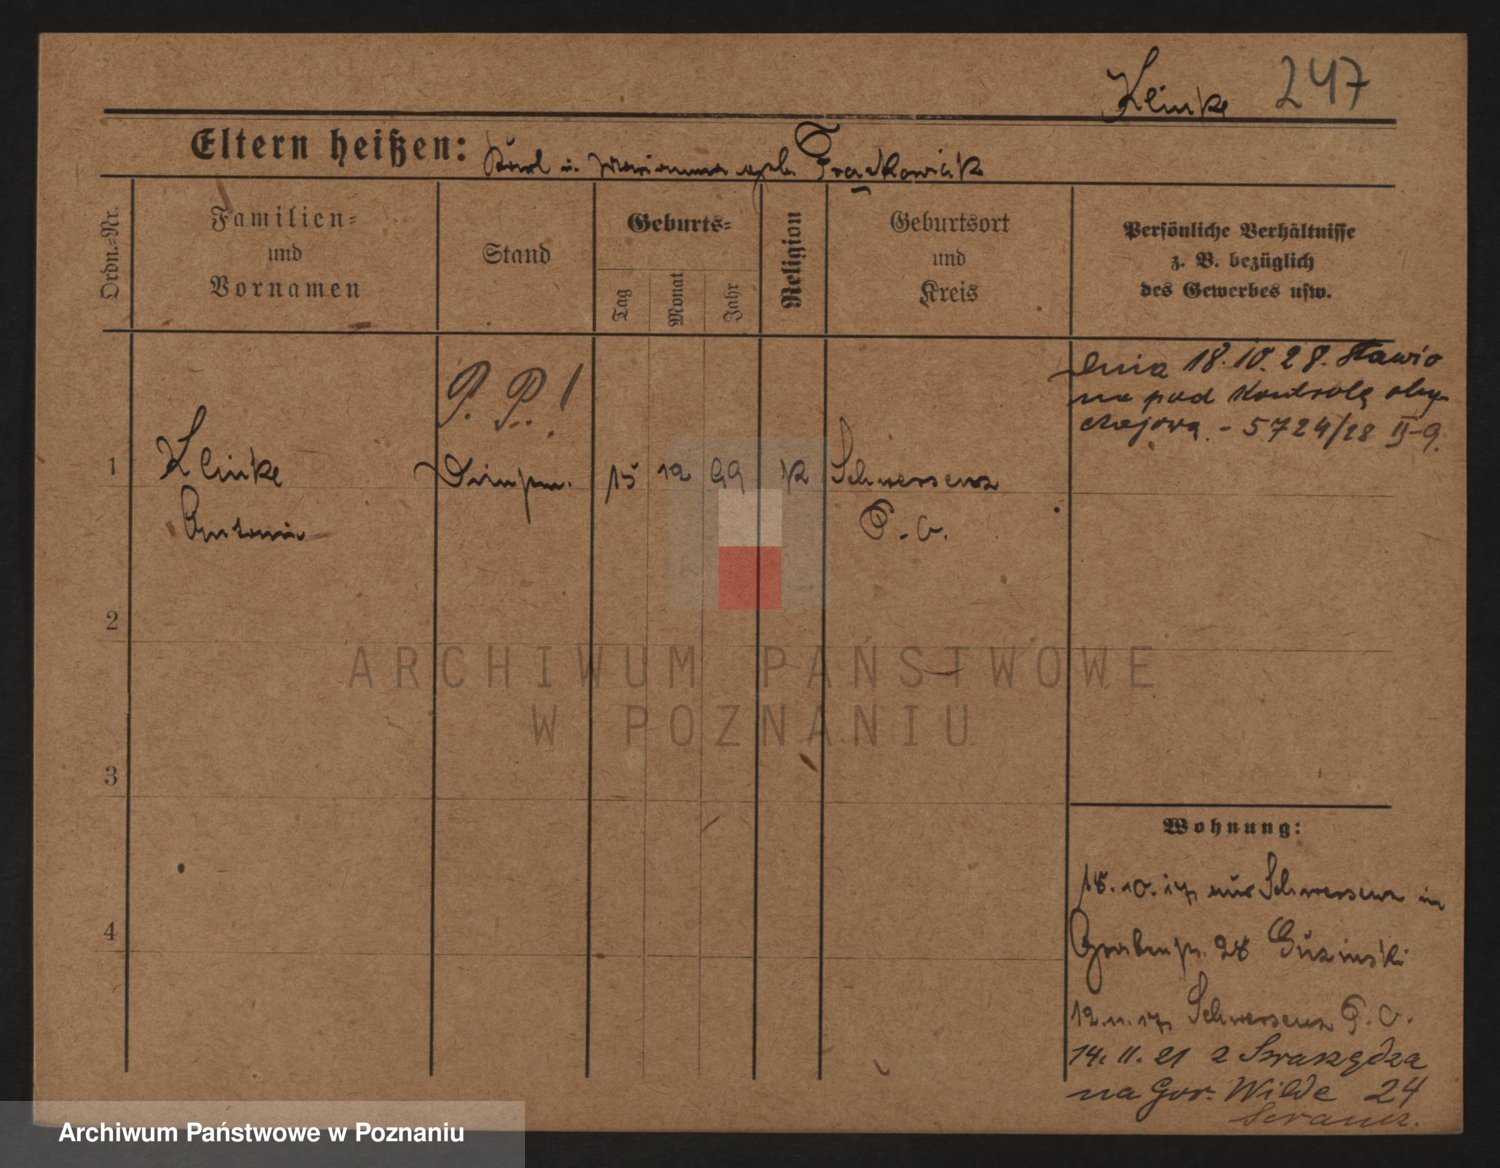 Klinke 247
Eltern heißen: Karl u. Marianna geb. Frąckowiak
Ordn.=Nr.
Familien=
und
Vornamen
Stand
Geburts=
Tag
Monat
Jahr
Religion
Geburtsort
und
Kreis
Persönliche Verhältnisse
z. B. bezüglich
des Gewerbes usw.
P. P. !
dnia 18.10.28. stawio
na pod kontrolę oby-
czajową. - 5724/28 II-9.
1 Klinke 15 12 99 K Schwersenz
Antonie P. O.
2
3
4
Wohnung:
18.10.17 aus Schwersenz in
Grabenstr. 28
12.11.17 Schwersenz P. O.
14.11.21 z
na Gór. Wilde 24
ARCHIWUM PAŃSTWOWE
W POZNANIU
Archiwum Państwowe w Poznaniu